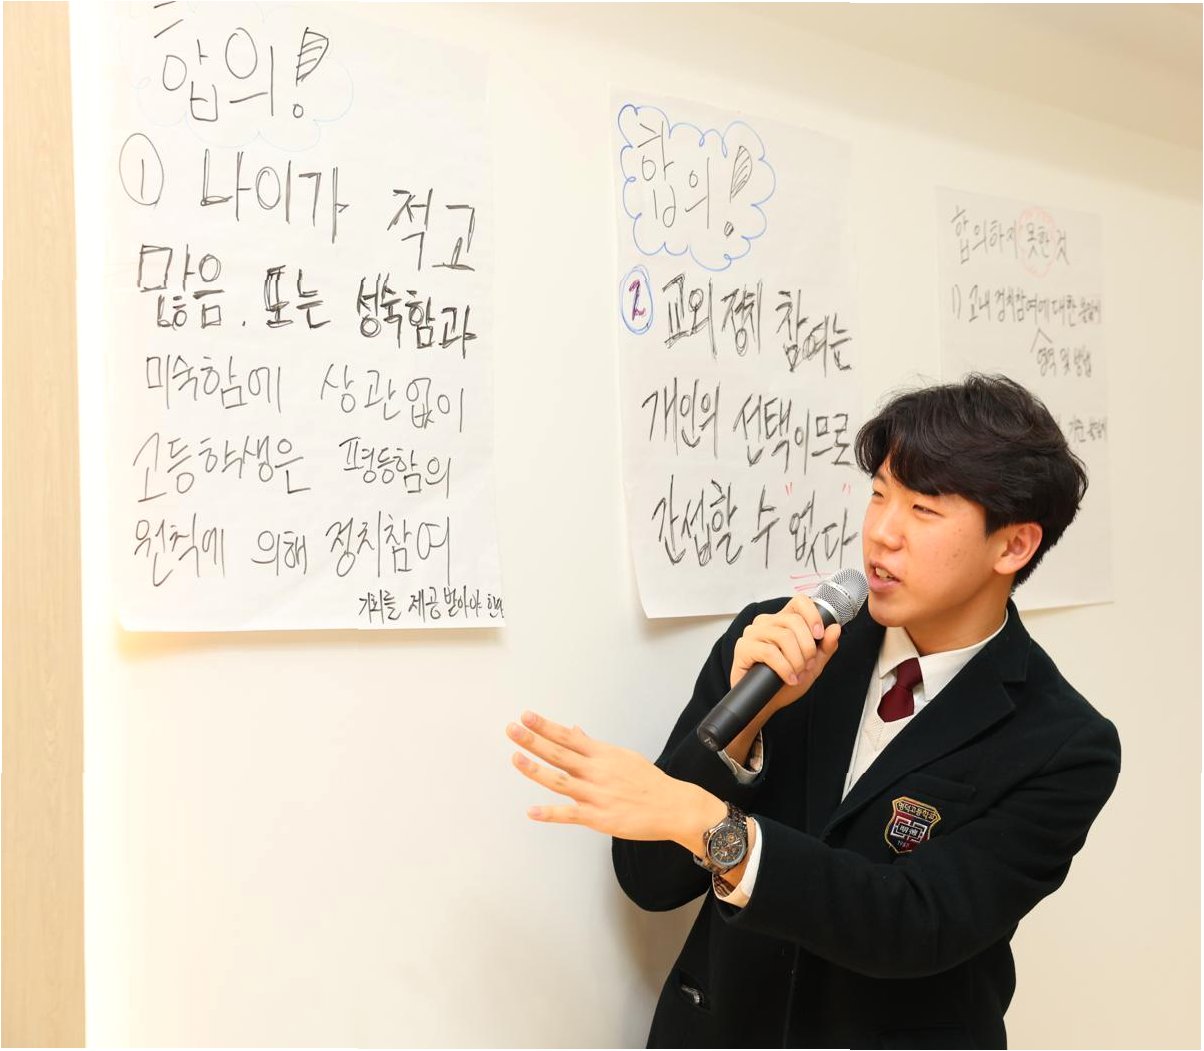 합의!
① 나이가 적고
많음, 또는 성숙함과
미숙함에 상관없이
고등학생은 평등함의
원칙에 의해 정치참여
기회를 제공받아야 한다
합의!
② 교외 정치 참여는
개인의 선택이므로
간섭할 수 "없다"
합의하지 못한 것
1) 교내 정치참여에 대한
영역 및 방법
명덕고등학교